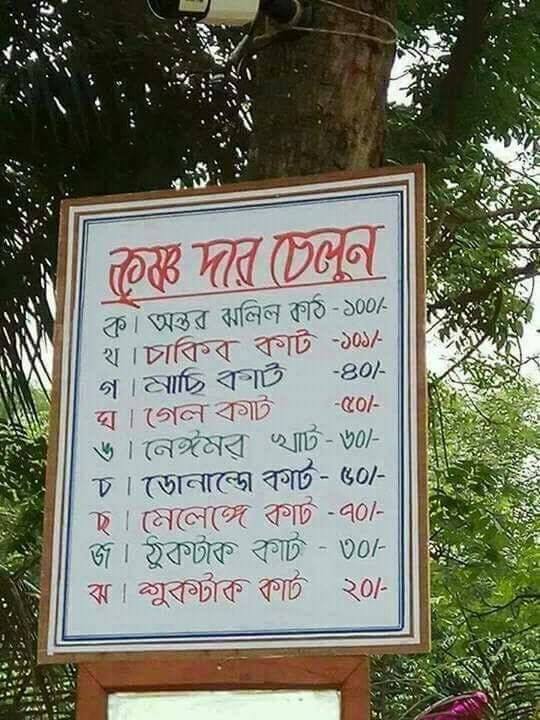 কৃষ্ণ দার চেলুন
ক। অন্তর ঝলিল কাঠ -১০০/-
খ। চাকিব কাট -১০১/-
গ। মাছি কাট -৪০/-
ঘ। গেল কাট -৫০/-
ঙ। নেঈমর খাট- ৬০/-
চ। ডোনাল্ডো কাট- ৫০/-
ছ। মেলেঙ্গে কাট -৭০/-
জ। ঠুকটাক কাট - ৩০/-
ঝ। শুকটাক কাট ২০/-